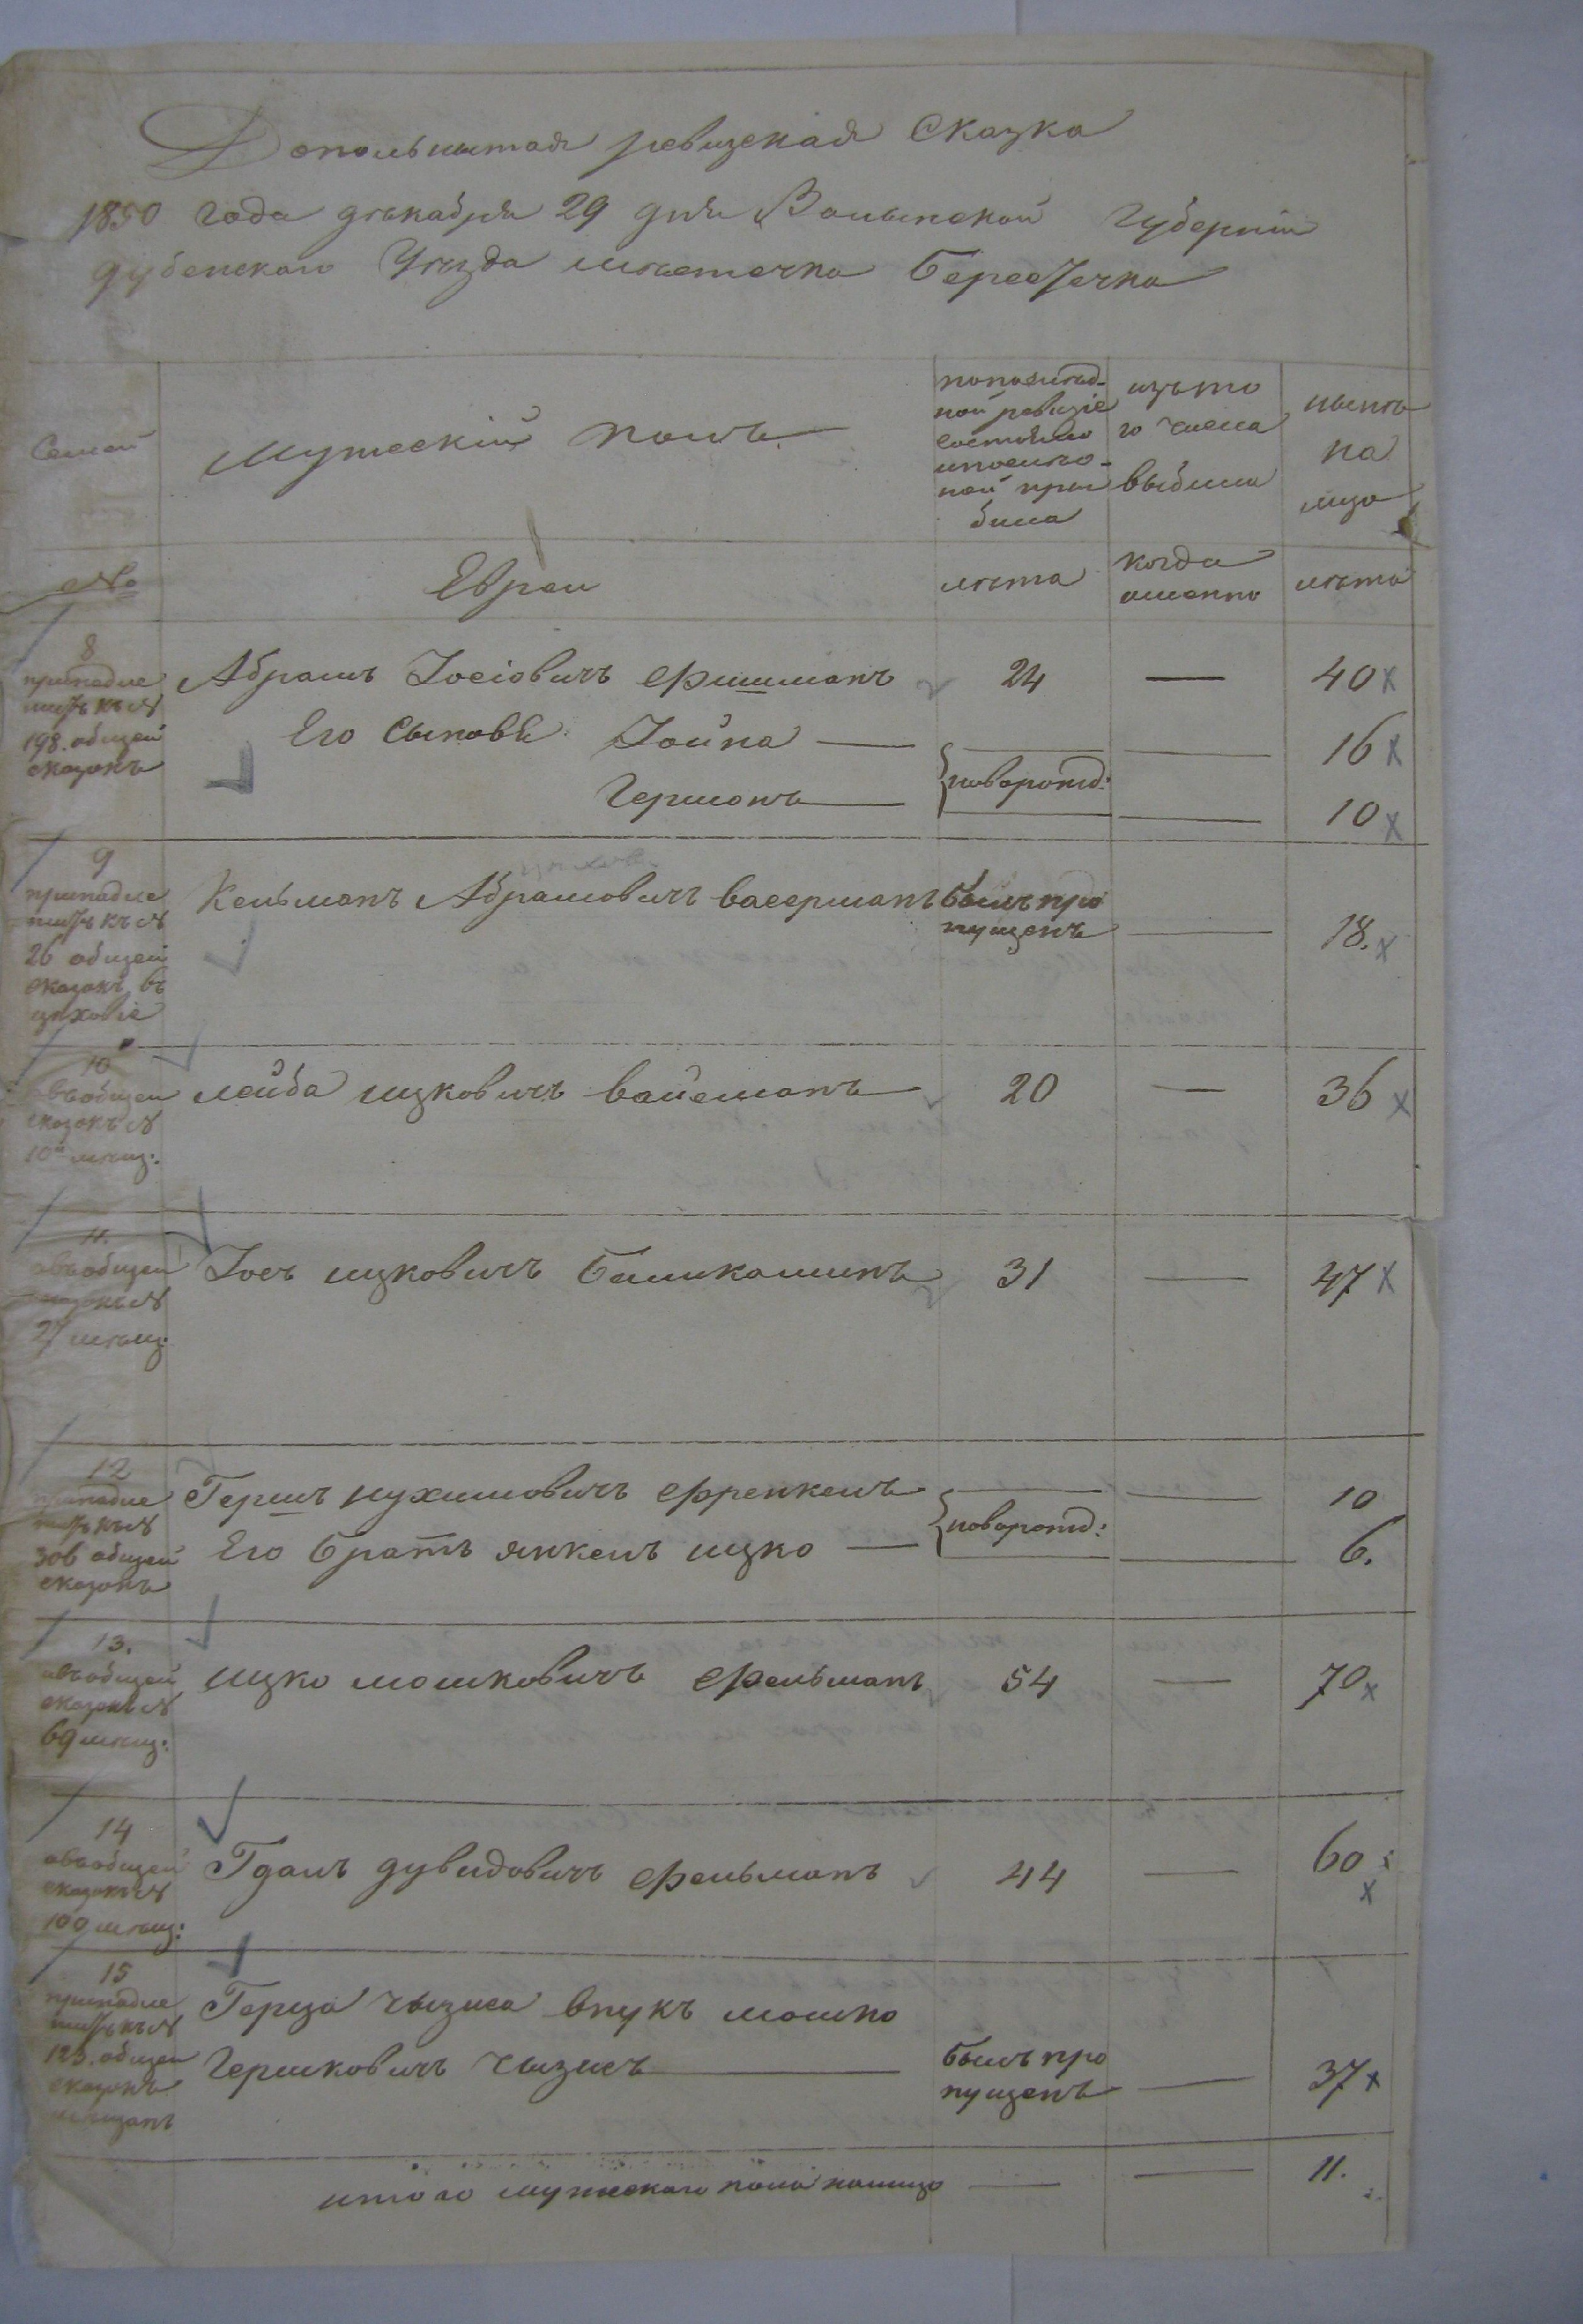 Допольнитая ревизская Сказка
1850 года декабря 29 дня Волынской Губернiи
дубенскаго Уѣзда мѣстечка Берестечка
Семей
мужескiй полъ
по послѣд-
ней ревизiе
состояло
и послѣ о-
ной при
была
изъ то
го числа
выбыли
нынѣ
на
лицо
№
Евреи
лѣта
когда
именно
лѣта
8
принадле
житъ къ №
198. общей
сказокъ
Абрамъ Iосiовичъ Фишманъ
24 — 40 x
Его Сыновъя: Iойна — — — 16 x
Германъ — новорожд: — 10 x
9
принадле
житъ къ №
26 общей
сказокъ въ
цѣховiе
Кельманъ Абрамовичъ васерманъ
былъ про
пущенъ — 18. x
10
въ общей
сказокъ №
10й мѣщ:
лейба ицковичъ вайсманъ
20 — 36 x
11.
въ общей
сказокъ №
27 мѣщ:
Iосъ ицковичъ
31 — 47 x
12
принадле
житъ къ №
306 общей
сказокъ
Гершъ нухимовичъ Френкель — — 10
Его братъ янкель ицко — новорожд: — 6.
13.
въ общей
сказокъ №
69 мѣщ:
ицко мошковичъ Фельманъ
54 — 70 x
14
въ общей
сказокъ №
100 мѣщ:
дувидовичъ Фельманъ
44 — 60 x
15
принадле
житъ къ №
123. общей
сказокъ
мѣщанъ
Герца чызиса внукъ мошко
Гершковичъ чызисъ —
былъ про
пущенъ — 37 x
итого мужескаго пола налицо — — 11.